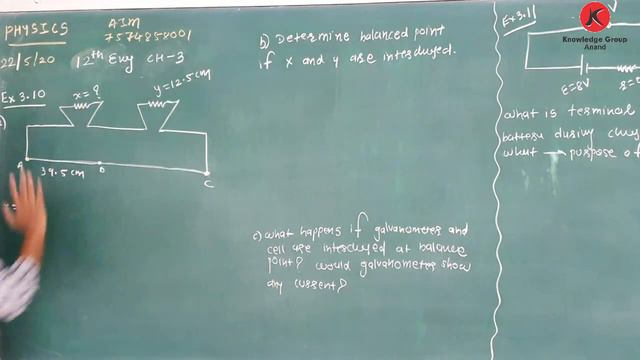 PHYSICS
AIM
7574858001
22/5/20
12th Eng CH-3
Ex 3.10
x = ?
y = 12.5 cm
A
39.5 cm
D
C
b) Determine balanced point
if x and y are interchged.
c) What happens if galvanometer and
cell are interchged at balance
point? would galvanometer show
any current?
Ex 3.11
Knowledge Group
Anand
E=8V
What is terminal
battery during
what purpose of